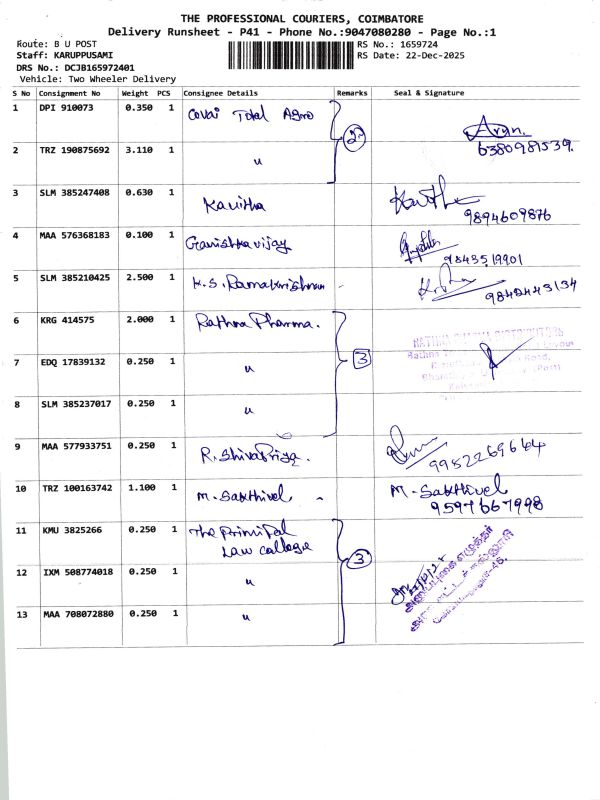 THE PROFESSIONAL COURIERS, COIMBATORE
Delivery Runsheet - P41 - Phone No.:9047080280 - Page No.:1
Route: B U POST
RS No.: 1659724
Staff: KARUPPUSAMI
RS Date: 22-Dec-2025
DRS No.: DCJB165972401
Vehicle: Two Wheeler Delivery
S No Consignment No Weight PCS Consignee Details Remarks Seal & Signature
1 DPI 910073 0.350 1 Covai Total Agro
2 Arun.
2 TRZ 190875692 3.110 1 " 6380981539.
3 SLM 385247408 0.630 1 Kavitha
9894609876
4 MAA 576368183 0.100 1 Ganishkavijay
9843519901
5 SLM 385210425 2.500 1 K.S. Ramakrishnan -
9842443134
6 KRG 414575 2.000 1 Rathna Pharma.
3
7 EDQ 17839132 0.250 1 "
8 SLM 385237017 0.250 1 "
9 MAA 577933751 0.250 1 R. ShivaPriya.
9952269644
10 TRZ 100163742 1.100 1 M. Sakthivel - M. Sakthivel
9597667998
11 KMU 3825266 0.250 1 The Principal
Law college
3
12 IXM 508774018 0.250 1 "
13 MAA 708072880 0.250 1 "